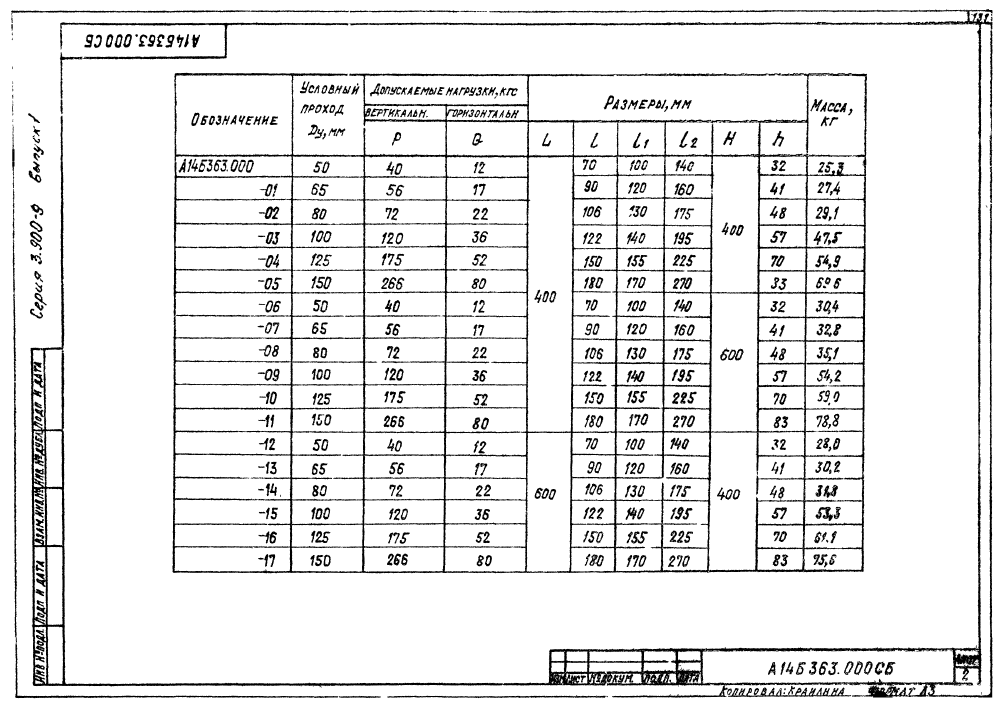 131
А14Б363.000 СБ
Серия 3.900-9 Выпуск 1
Обозначение Условный проход Dу, мм Допускаемые нагрузки, кгс Размеры, мм Масса, кг
вертикальн. горизонтальн
P Q L l l1 l2 H h
А14Б363.000 50 40 12 400 70 100 140 400 32 25,3
-01 65 56 17 90 120 160 41 27,4
-02 80 72 22 106 130 175 48 29,1
-03 100 120 36 122 140 195 57 47,5
-04 125 175 52 150 155 225 70 54,9
-05 150 266 80 180 170 270 33 69 6
-06 50 40 12 70 100 140 600 32 30,4
-07 65 56 17 90 120 160 41 32,8
-08 80 72 22 106 130 175 48 35,1
-09 100 120 36 122 140 195 57 54,2
-10 125 175 52 150 155 225 70 59,0
-11 150 266 80 180 170 270 83 78,8
-12 50 40 12 600 70 100 140 400 32 28,0
-13 65 56 17 90 120 160 41 30,2
-14 80 72 22 106 130 175 48
-15 100 120 36 122 140 195 57 53,3
-16 125 175 52 150 155 225 70 61.1
-17 150 266 80 180 170 270 83 75,6
Инв № подл. Подп и дата Взам. инв. № Инв. № дубл. Подп и дата
Изм Лист № докум. Подп. Дата
А14Б363.000СБ
Лист
2
Копировал: Краилина Формат А3